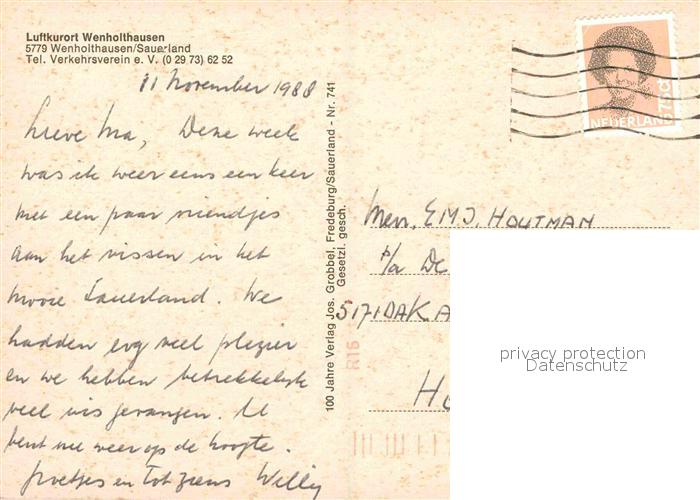 Luftkurort Wenholthausen
5779 Wenholthausen/Sauerland
Tel. Verkehrsverein e. V. (0 29 73) 62 52
11 November 1988
Lieve Ma, Deze week
was ik weer eens een keer
met een paar vriendjes
aan het vissen in het
mooie Sauerland. We
hadden erg veel plezier
en we hebben betrekkelijk
veel vis gevangen. U
bent nu weer op de hoogte.
groetjes en tot ziens Willy
100 Jahre Verlag Jos. Grobbel, Fredeburg/Sauerland - Nr. 741
Gesetzl. gesch.
NEDERLAND 75c
Mevr. E.M.J. HOUTMAN
p/a De
5171 DA KA
Ho
R15
privacy protection
Datenschutz